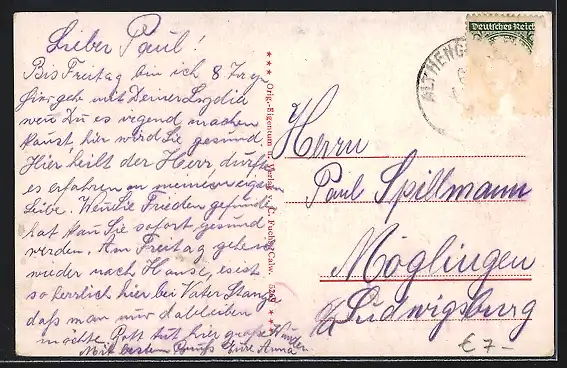 Lieber Paul!
Bis Freitag bin ich 8 Tage
hier geh mit Deiner Lydia
wen Du es irgend machen
kanst, hier wird Sie gesund.
Hier heilt der Herr, durfte
es erfahren an meinem eigenen
Leibe. Wen Sie Frieden gefunden
hat kan Sie sofort gesund
werden. Am Freitag gehe ich
wieder nach Hause, es ist
so herrlich hier bei Vater Stanger
daß man nur dableiben
möchte. Gott tut hier große Wunder.
Mit bestem Gruß Eure Anna
*** Orig.-Eigentum u. Verlag v. C. Fuchs, Calw. ***
Deutsches Reich
ALTHENGS
Herrn
Paul Spillmann
Möglingen
Ludwigsburg
€ 7-